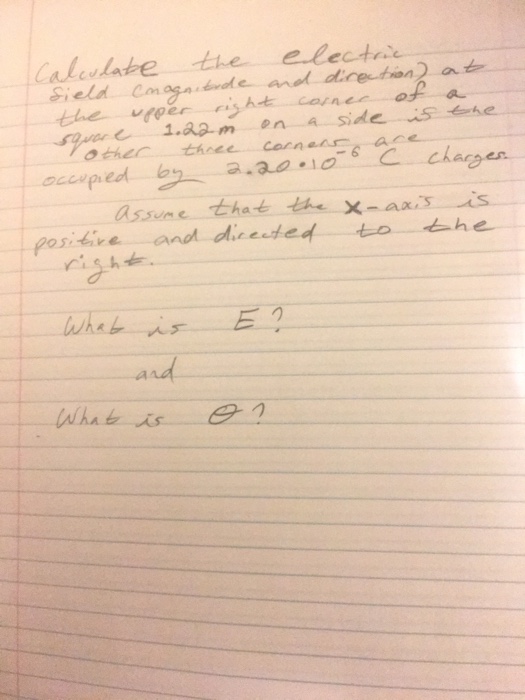 Calculate the electric
field (magnitude and direction) at
the upper right corner of a
square 1.22m on a side is the
other three corners are
occupied by 2.20•10^-6 C charges.
Assume that the x-axis is
positive and directed to the
right.
What is E?
and
What is θ?